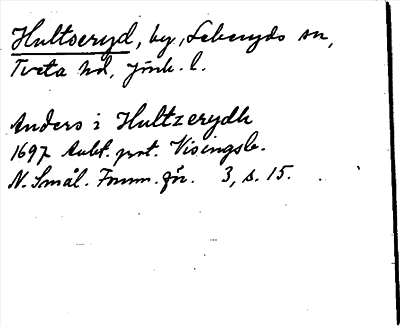 Hultseryd, by, Lekeryds sn,
Tveta hd, Jönk. l.
Anders i Hultzerydh
1697 Aukt. prot. Visingsb.
N. Smål. Fornm. för. 3, s. 15.